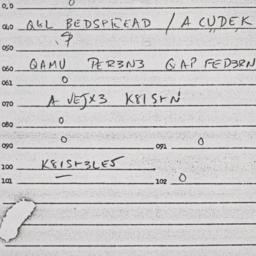 0,0 0
040 QUL BEDSPREAD / A CUDEK
050
060 QAMU PER3N3 QAP FED3RN
061 0
070 A VEJX3 K8ISHN
080 0
090 0 091 0
100 K8ISH3LE5
101 102 0